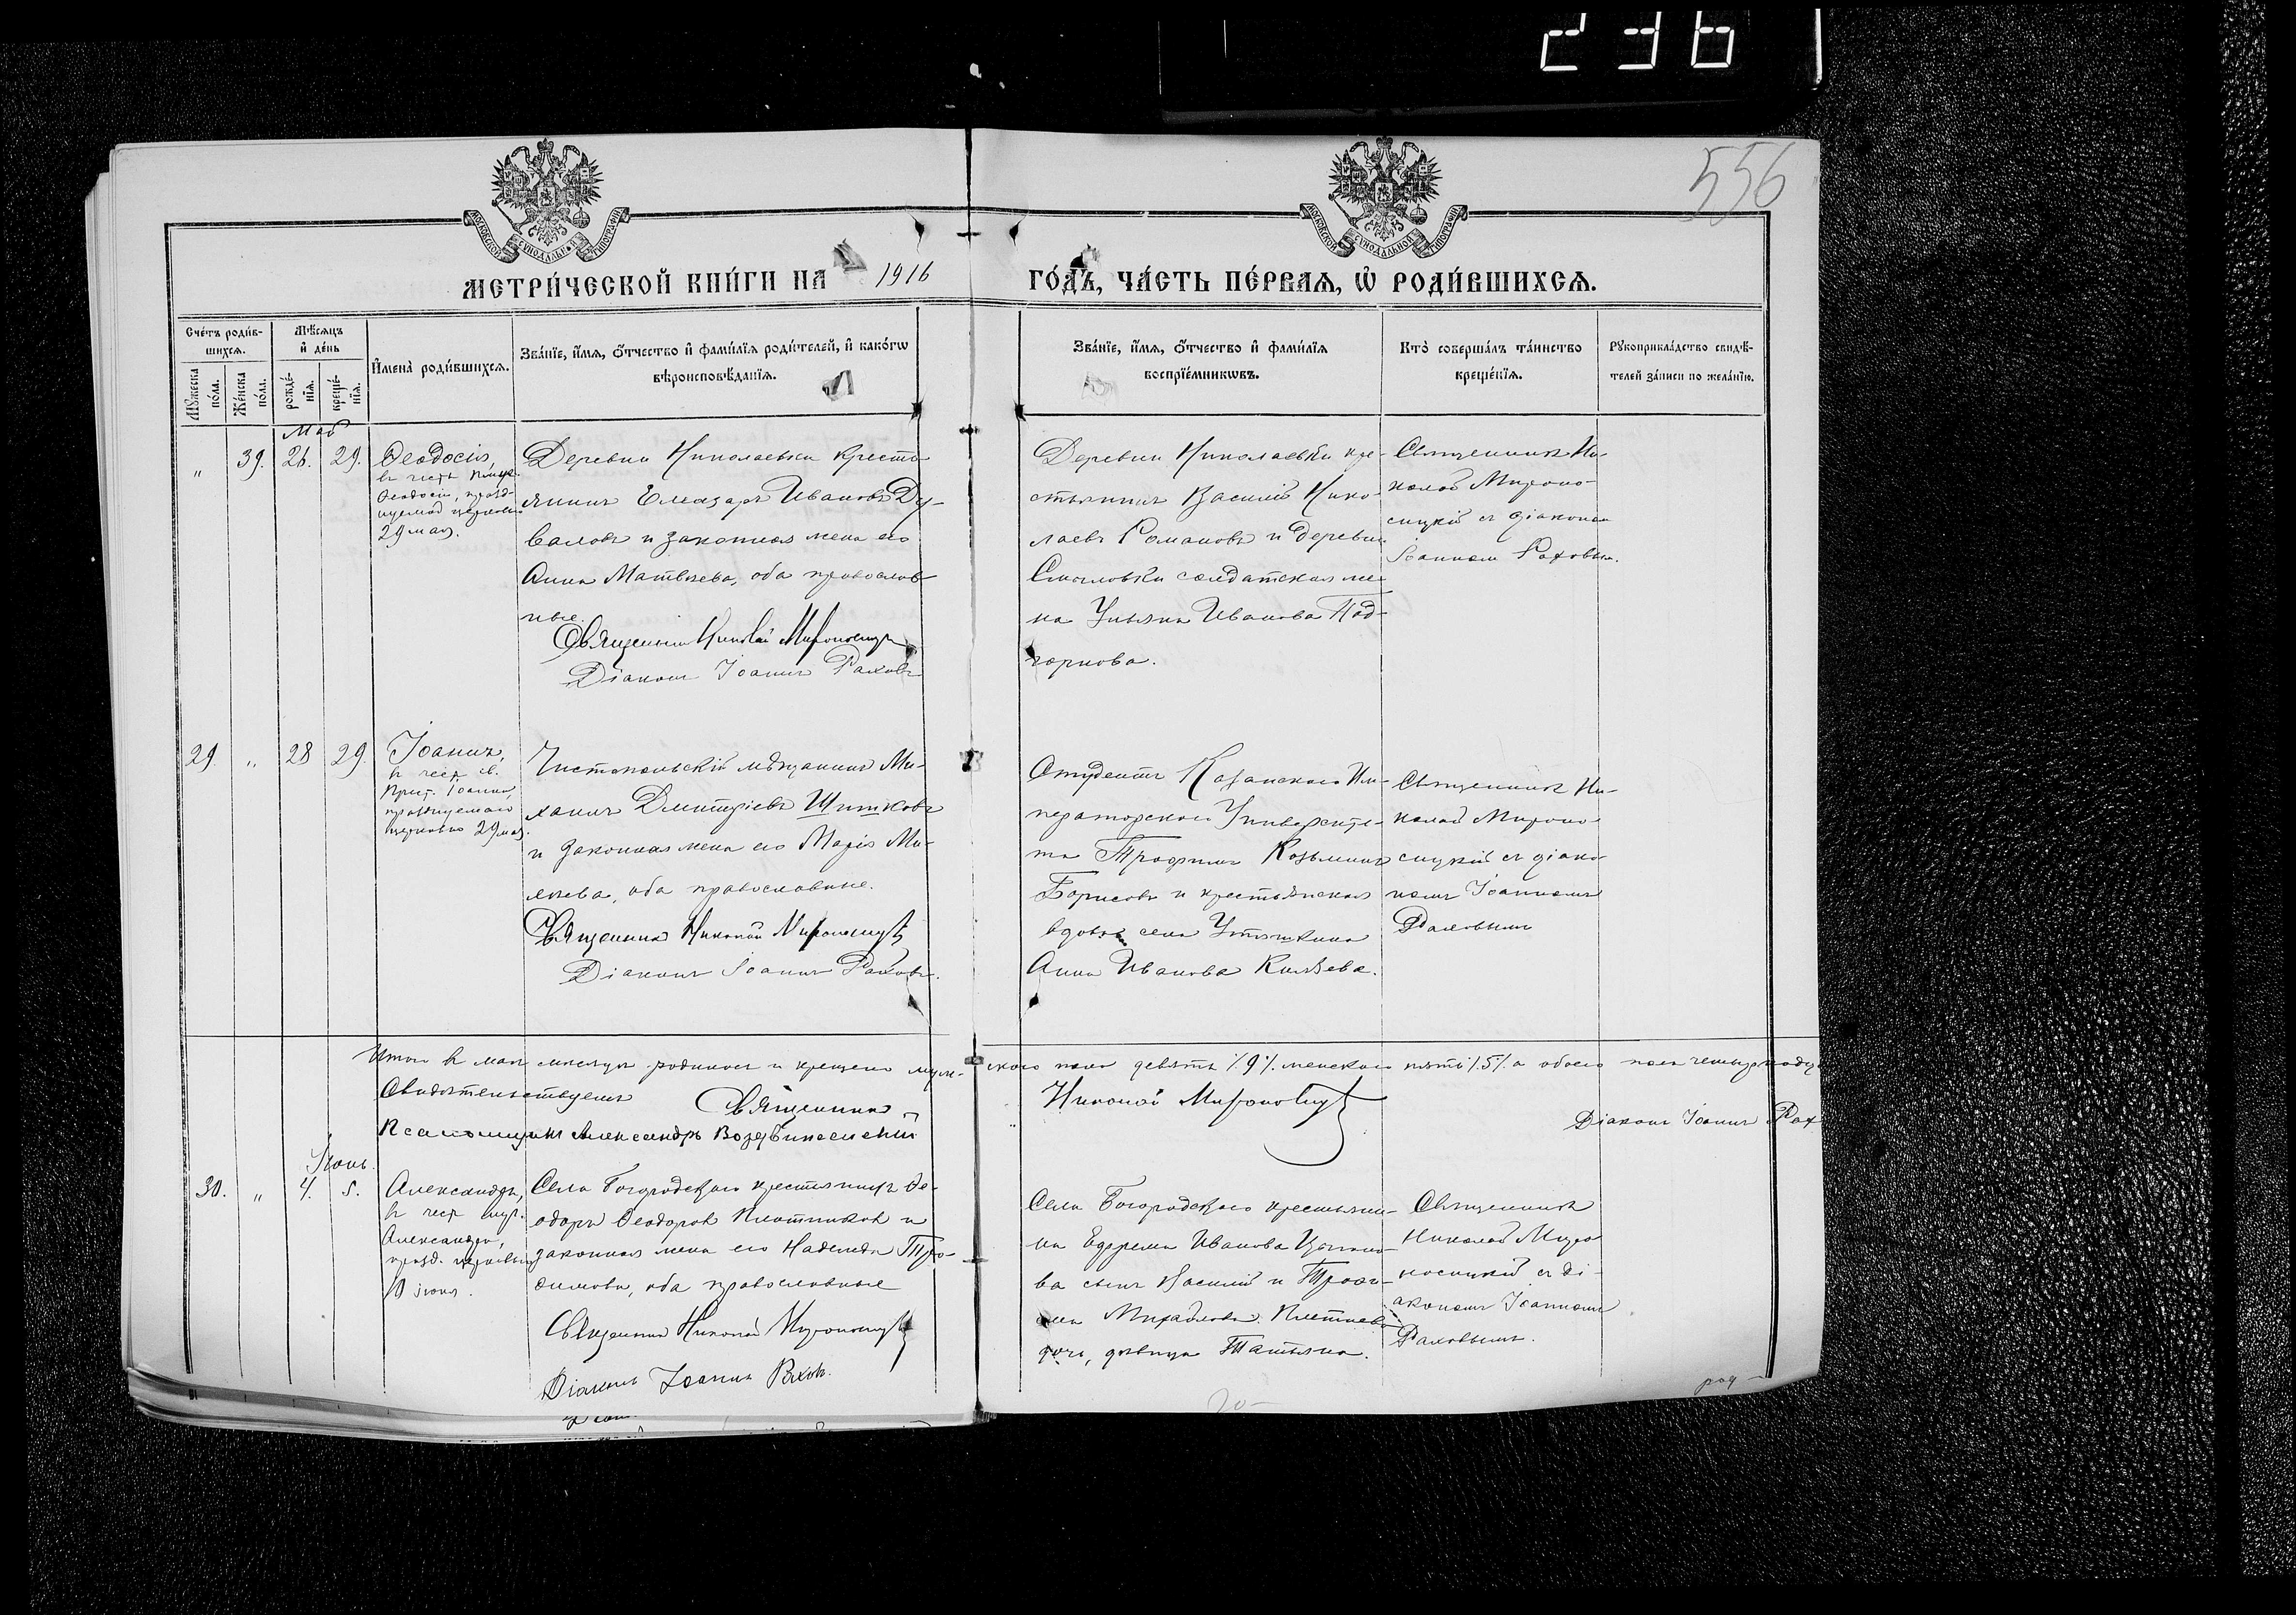 236
556
МОСКОВСКОЙ СѴНОДАЛЬНОЙ ТИПОГРАФІИ
МОСКОВСКОЙ СѴНОДАЛЬНОЙ ТИПОГРАФІИ
МЕТРИ́ЧЕСКОЙ КНИ́ГИ НА 1916 ГО́ДЪ, ЧА́СТЬ ПЕ́РВАЯ, Ѡ҆ РОДИ́ВШИХСЯ.
Сче́тъ роди́в-
шихся.
Мѣ́сяцъ
и҆ де́нь
Мꙋ́жеска
по́ла.
Же́нска
по́ла.
рожде́-
нїя.
креще́-
нїя.
И҆мена̀ роди́вшихся.
Зва́нїе, и҆́мя, ѻ҆́тчество и҆ фами́лїя роди́телей, и҆ како́гѡ
вѣроисповѣ́данїя.
Зва́нїе, и҆́мя, ѻ҆́тчество и҆ фами́лїя
воспрїе́мникѡвъ.
Кто̀ соверша́лъ та́инство
креще́нїя.
Рꙋкоприкла́дство свидѣ́-
телей за́писи по жела́нїю.
Май
„ 39. 26. 29. Ѳеодосія,
въ честь
Ѳеодосіи, празд-
нуемой церковью
29 мая.
Деревни Николаевки крестья-
янинъ Елеазаръ Ивановъ Ду-
валовъ и законная жена его
Анна Матвѣева, оба православ-
ные.
Священникъ Николай Мироносицкій
Діаконъ Іоаннъ Раховъ
Деревни Николаевки кре-
стьянинъ Василій Нико-
лаевъ Романовъ и деревни
солдатская же-
на Ульяна Иванова Под-
горнова.
Священникъ Ни-
колай Мироно-
сицкій съ діакономъ
Іоанномъ Раховымъ.
29. „ 28 29. Іоаннъ,
въ честь св.
Іоанна,
празднуемаго
церковью 29 мая.
Чистопольскій мѣщанинъ Ми-
хаилъ Димитріевъ Шишковъ
и законная жена его Марія Ми-
хѣева, оба православные.
Священникъ Николай Мироносицкій
Діаконъ Іоаннъ Раховъ.
Студентъ Казанскаго Им-
ператорскаго Университе-
та Трофимъ Козьминъ
Борисовъ и крестьянская
вдова села Утяшкина
Анна Иванова Князева.
Священникъ Ни-
колай Мироно-
сицкій съ діако-
номъ Іоанномъ
Раховымъ
Итого въ маѣ мѣсяцѣ родилось и крещено муж-скаго пола девять /9/, женскаго пять /5/, а обоего пола четырнадца
Свидѣтельствуемъ Священникъ Николай Мироносицкій
Діаконъ Іоаннъ Рах
Псаломщикъ Александръ Воздвиженскій
Іюнь.
30. „ 4. 5. Александръ,
въ честь муч.
Александра,
празд. церковью
10 іюня.
Села Богородскаго крестьянинъ Ѳе-
одоръ Ѳеодоровъ Плотниковъ и
законная жена его Надежда Тро-
фимова, оба православные
Священникъ Николай Мироносицкій
Діаконъ Іоаннъ Раховъ.
Села Богородскаго крестьяни-
на Ефрема Иванова
ва сынъ Василій и Трофи-
ма Михайлова
дочь, дѣвица Татьяна.
Священникъ
Николай Миро-
носицкій съ ді-
акономъ Іоанномъ
Раховымъ.